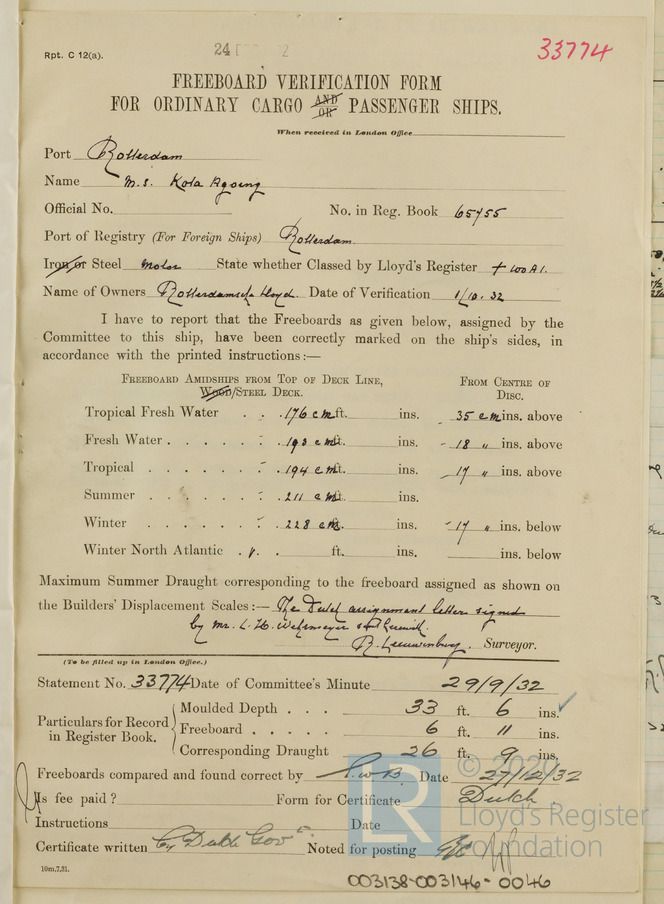 Rpt. C 12(a).
24 2
33774
FREEBOARD VERIFICATION FORM
FOR ORDINARY CARGO AND/OR PASSENGER SHIPS.
When received in London Office
Port Rotterdam
Name M.S. Kota Agoeng
Official No. No. in Reg. Book 65455
Port of Registry (For Foreign Ships) Rotterdam
Iron or Steel Motor State whether Classed by Lloyd's Register + 100 A1.
Name of Owners Rotterdamsche Lloyd. Date of Verification 1/10.32
I have to report that the Freeboards as given below, assigned by the
Committee to this ship, have been correctly marked on the ship's sides, in
accordance with the printed instructions:—
FREEBOARD AMIDSHIPS FROM TOP OF DECK LINE, FROM CENTRE OF
WOOD/STEEL DECK. DISC.
Tropical Fresh Water . . . 176 cm ft. ins. 35 cm ins. above
Fresh Water . . . . . . 193 cm ft. ins. 18 " ins. above
Tropical . . . . . . 194 cm ft. ins. 17 " ins. above
Summer . . . . . . 211 cm ft. ins.
Winter . . . . . . 228 cm ft. ins. 17 " ins. below
Winter North Atlantic . . . ft. ins. ins. below
Maximum Summer Draught corresponding to the freeboard assigned as shown on
the Builders' Displacement Scales:— The Dutch assignment letter signed
by Mr. L. H.
R. Leeuwenburg. Surveyor.
(To be filled up in London Office.)
Statement No. 33774 Date of Committee's Minute 29/9/32
Particulars for Record in Register Book.
Moulded Depth . . . 33 ft. 6 ins.
Freeboard . . . . . 6 ft. 11 ins.
Corresponding Draught 26 ft. 9 ins.
Freeboards compared and found correct by Date 27/12/32
Is fee paid? Form for Certificate Dutch
Instructions Date
Certificate written by Dutch Govt. Noted for posting
10m.7.31.
© 2020
LR
Lloyd's Register
Foundation
003138-003146-0046